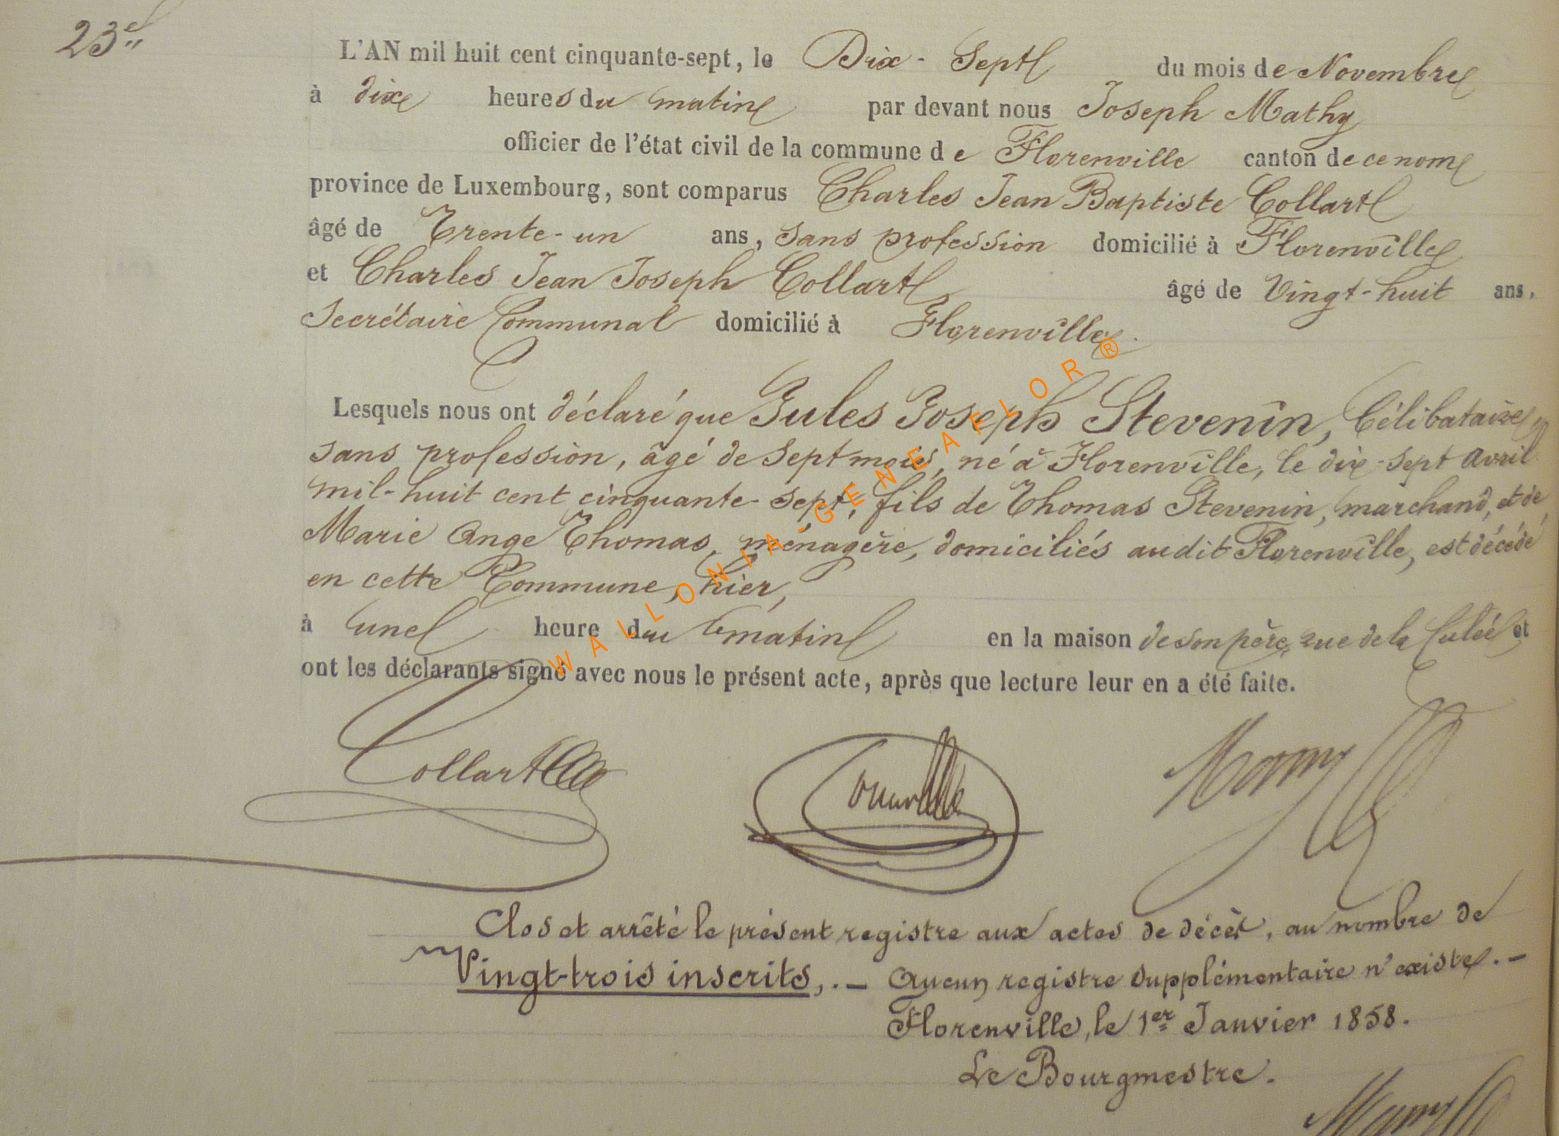 23e
L'AN mil huit cent cinquante-sept, le Dix-Sept du mois de Novembre
à dix heures du matin par devant nous Joseph Mathy
officier de l'état civil de la commune de Florenville canton de ce nom
province de Luxembourg, sont comparus Charles Jean Baptiste Collart
âgé de Trente-un ans, sans profession domicilié à Florenville
et Charles Jean Joseph Collart âgé de Vingt-huit ans,
Secrétaire Communal domicilié à Florenville.
Lesquels nous ont déclaré que Jules Joseph Stevenin, Célibataire,
sans profession, âgé de sept mois, né à Florenville, le dix-sept avril
mil-huit cent cinquante-sept, fils de Thomas Stevenin, marchand, et de
Marie Ange Thomas, ménagère, domiciliés audit Florenville, est décédé
en cette Commune, hier,
à une heure du matin en la maison de son père, rue de la Culée, et
ont les déclarants signé avec nous le présent acte, après que lecture leur en a été faite.
WALLONIA-GENEAFLOR®
Collart
Clos et arrêté le présent registre aux actes de décès, au nombre de
Vingt-trois inscrits,.— Aucun registre supplémentaire n'existe.—
Florenville, le 1er Janvier 1858.
Le Bourgmestre.